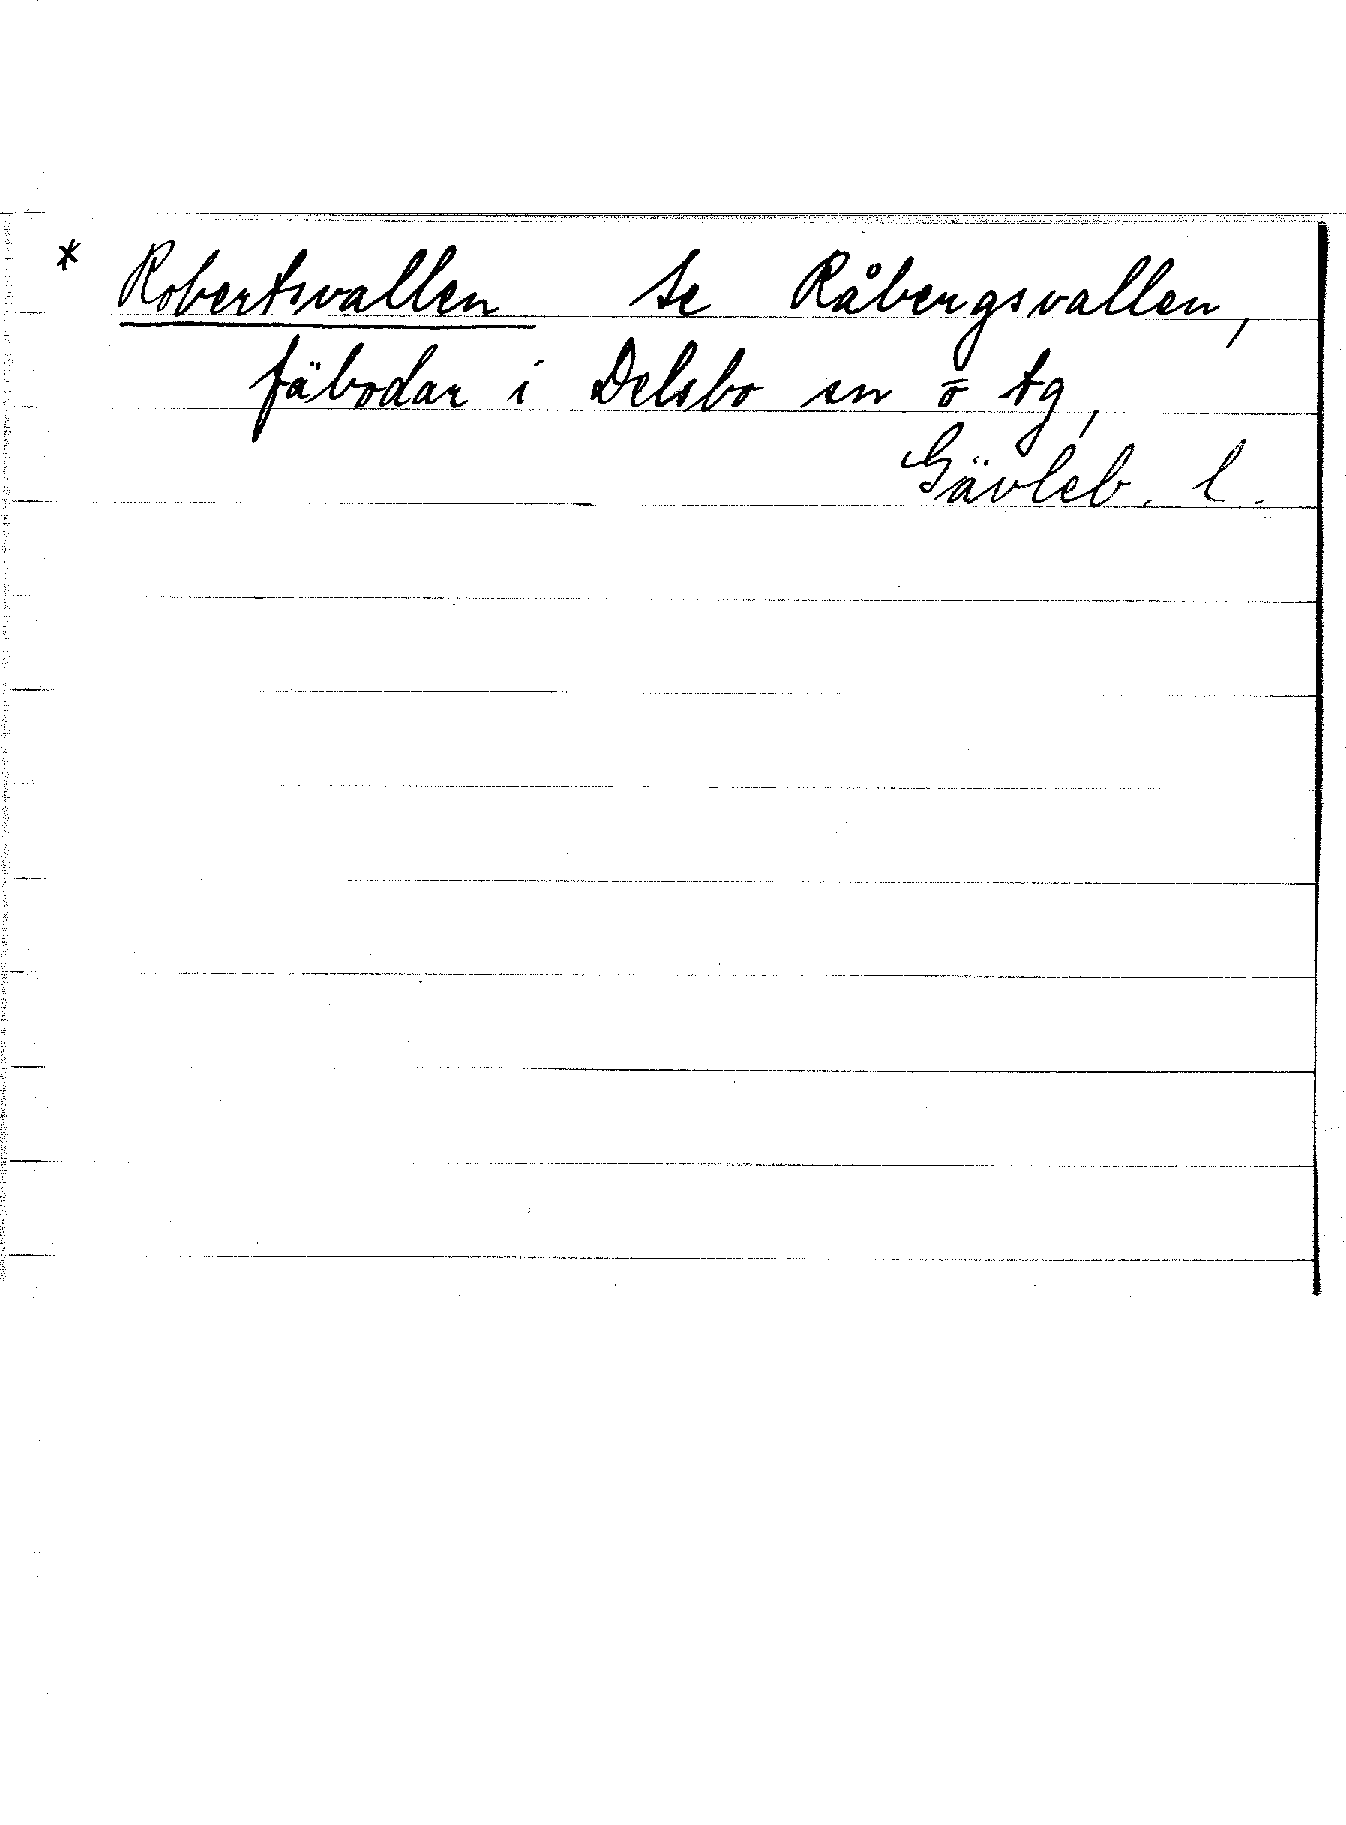 * Robertsvallen se Råbergsvallen,
fäbodar i Delsbo sn o tg,
Gävleb. l.